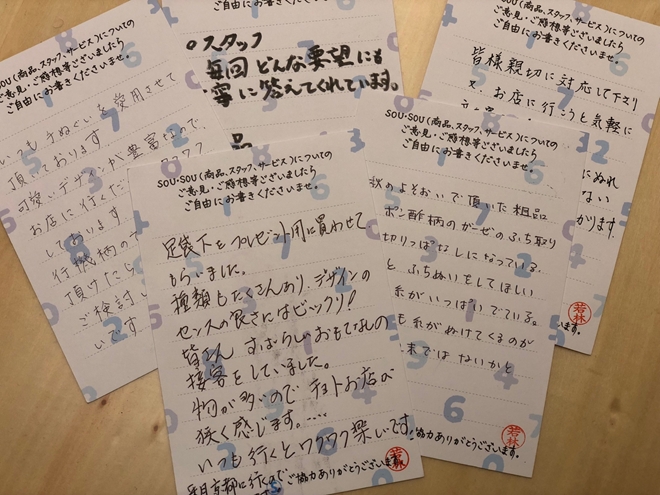 SOU・SOU(商品、スタッフ、サービス)についての
ご意見・ご感想等ございましたら
ご自由にお書きくださいませ。
いつも手ぬぐいを愛用させて
頂いております
可愛いデザインが豊富なので、
お店に行くた
しております
頂けたら
ご検討
いです
ご自由にお書きくださいませ。
○スタッフ
毎回どんな要望にも
寧に答えてくれています。
SOU(商品、スタッフ、サービス)についての
ご意見・ご感想等ございましたら
ご自由にお書きくださいませ。
皆様親切に対応して下さり
お店に行こうと気軽に
にぬれ
ない
がります。
若林
います。
SOU・SOU(商品、スタッフ、サービス)についての
ご意見・ご感想等ございましたら
ご自由にお書きくださいませ。
足袋下をプレゼント用に買わせて
もらいました。
種類もたくさんあり、デザインの
センスの良さにはビックリ!
皆さん すばらしいおもてなしの
接客をしていました。
物が多いので チョトお店が
狭く感じます。…
いつも行くとワクワク楽しいです
京都に行くので
ご協力ありがとうございます。
SOU・SOU(商品、スタッフ、サービス)についての
ご意見・ご感想等ございましたら
ご自由にお書きくださいませ。
秋のよそおいで頂いた粗品
ポン酢柄のガーゼのふち取り
切りっぱなしになっている。
と ふちぬいをしてほしい
糸がいっぱいでている。
も糸がぬけてくるのが
末ではないかと
若林
ご協力ありがとうございます。